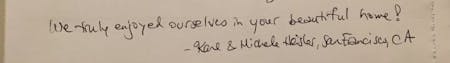 We truly enjoyed ourselves in your beautiful home!
- Karl & Michele Heisler, San Francisco, CA